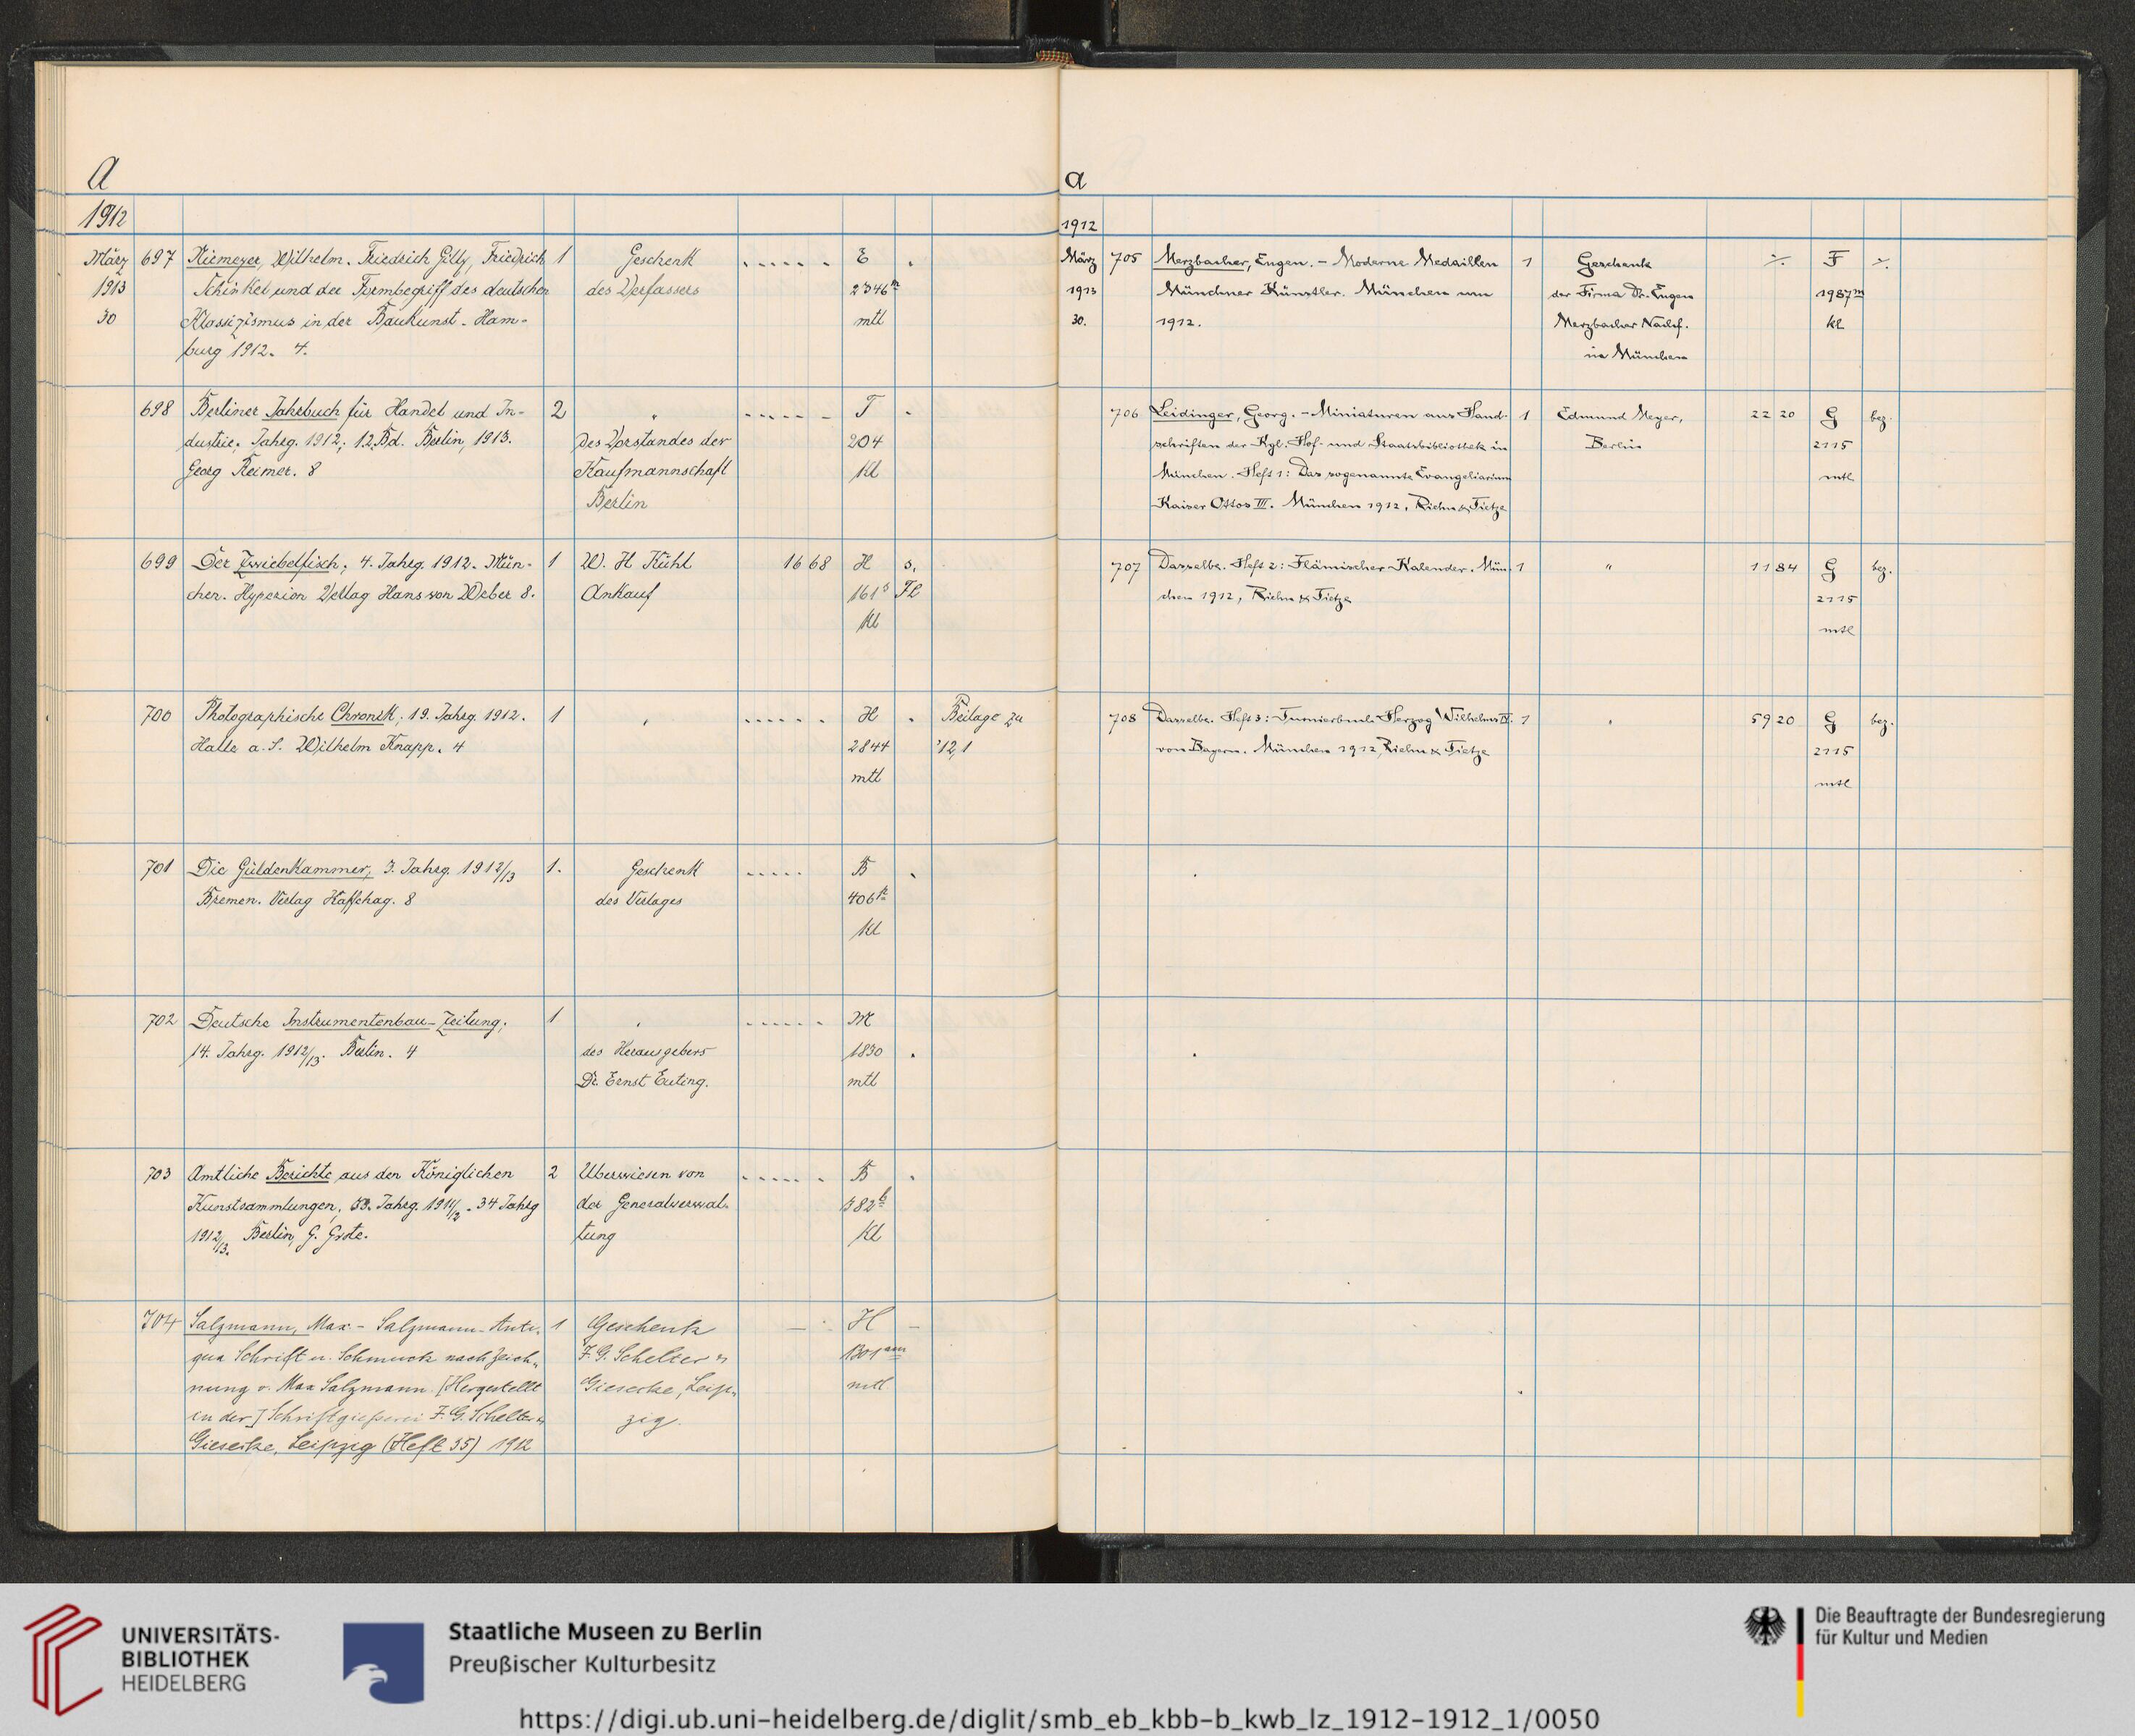 A
1912
März 697 Niemeyer, Wilhelm. Friedrich Gilly, Friedrich 1 Geschenk . . . . . . E .
1913 Schinkel und der Formbegriff des deutschen des Verfassers 2346ⁿ
30 Klassizismus in der Baukunst. Ham- mtl
burg 1912. 4.
698 Berliner Jahrbuch für Handel und In- 2 „ . . . . . . T .
dustrie. Jahrg. 1912; 1.2.Bd. Berlin, 1913. des Vorstandes der 204
Georg Reimer. 8 Kaufmannschaft Kl
Berlin
699 Der Zwiebelfisch; 4. Jahrg. 1912. Mün- 1 W. H. Kühl 16 68 H s.
chen. Hyperion Verlag Hans von Weber 8. Ankauf 161ˢ Fl
Kl
700 Photographische Chronik; 19. Jahrg. 1912. 1 „ . . . . . . H . Beilage zu
Halle a. S. Wilhelm Knapp. 4 2844 '12,1
mtl
701 Die Güldenkammer, 3. Jahrg. 1912/13 1. Geschenk . . . . . B .
Bremen. Verlag Kaffehag. 8 des Verlages 406ᵏ
Kl
702 Deutsche Instrumentenbau-Zeitung; 1 „ . . . . . . M
14. Jahrg. 1912/13. Berlin. 4 des Herausgebers 1830 .
Dr. Ernst Euting. mtl
703 Amtliche Berichte aus den Königlichen 2 Überwiesen von . . . . . . B .
Kunstsammlungen, 33. Jahrg. 1911/2. 34 Jahrg der Generalverwal- 382ᵇ
1912/13. Berlin, G. Grote. tung Kl
704 Salzmann, Max. - Salzmann-Anti- 1 Geschenk — . H —
qua Schrift u. Schmuck nach Zeich- F. G. Schelter & 1301ᵃᵐ
nung v. Max Salzmann. [Hergestellt Giesecke, Leip- mtl
in der] Schriftgießerei F. G. Schelter & zig.
Giesecke, Leipzig (Heft 35) 1912
a
1912
März 705 Merzbacher, Eugen. - Moderne Medaillen 1 Geschenk ./. F ./.
1913 Münchner Künstler. München um der Firma Dr. Eugen 1987ᵐ
30. 1912. Merzbacher Nachf. kl
in München
706 Leidinger, Georg. - Miniaturen aus Hand- 1 Edmund Meyer, 22 20 G bez.
schriften der Kgl. Hof- und Staatsbibliothek in Berlin 2115
München. Heft 1: Das sogenannte Evangeliarium mtl
Kaiser Ottos III. München 1912, Riehn & Tietze
707 Dasselbe. Heft 2: Flämischer Kalender. Mün- 1 " 11 84 G bez.
chen 1912, Riehn & Tietze 2115
mtl
708 Dasselbe. Heft 3: Turnierbuch Herzog Wilhelms IV. 1 " 59 20 G bez.
von Bayern. München 1912, Riehn & Tietze 2115
mtl
UNIVERSITÄTS-
BIBLIOTHEK
HEIDELBERG
Staatliche Museen zu Berlin
Preußischer Kulturbesitz
Die Beauftragte der Bundesregierung
für Kultur und Medien
https://digi.ub.uni-heidelberg.de/diglit/smb_eb_kbb-b_kwb_lz_1912-1912_1/0050